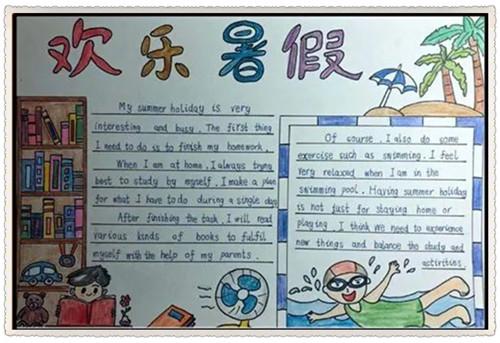 欢乐暑假
My summer holiday is very
interesting and busy. The first thing
I need to do is to finish my homework.
When I am at home, I always trying
best to study by myself. I make a plan
for what I have to do during a single day
After finishing the task, I will read
various kinds of books to fulfil
myself with the help of my parents.
Of course, I also do some
exercise such as swimming. I feel
very relaxed when I am in the
swimming pool. Having summer holiday
is not just for staying home or
playing. I think we need to experience
new things and balance the study and
activities